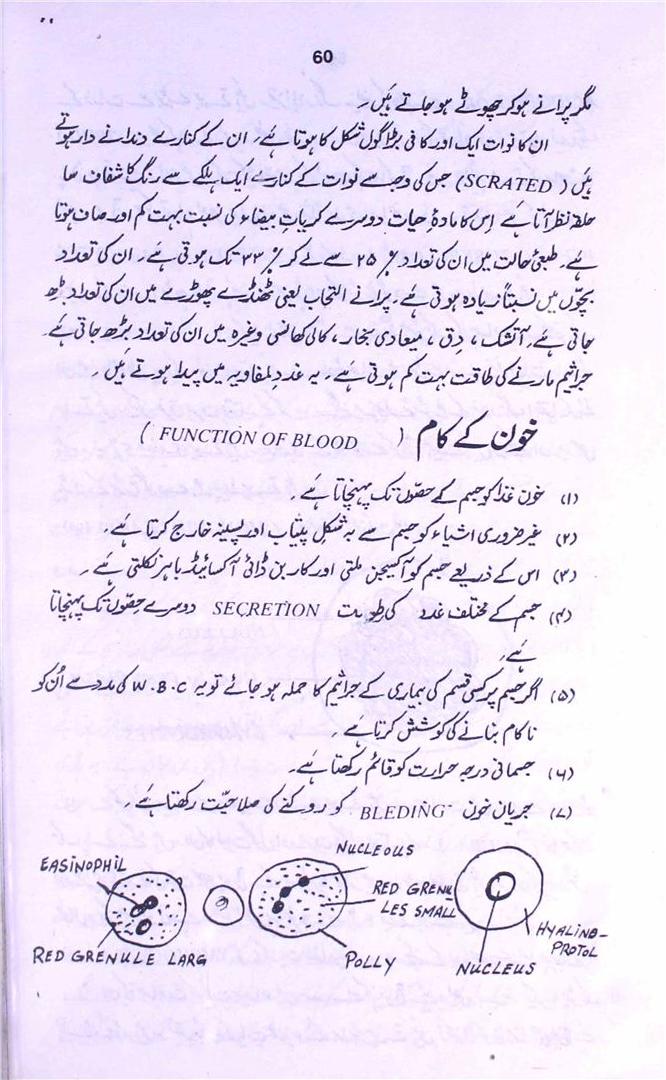 60
مگر پرانے ہو کر چھوٹے ہو جاتے ہیں۔
ان کا نوات ایک اور کافی بڑا گول شکل کا ہوتا ہے۔ ان کے کنارے دندانے دار ہوتے
ہیں (SCRATED) جس کی وجہ سے نوات کے کنارے ایک ہلکے سے رنگ کا شفاف سا
حلقہ نظر آتا ہے اس کا مادۂ حیات دوسرے کریاتِ بیضاء کی نسبت بہت کم اور صاف ہوتا
ہے۔ طبعی حالت میں ان کی تعداد ٪۲۵ سے لے کر ٪۳۳ تک ہوتی ہے۔ ان کی تعداد
بچوں میں نسبتاً زیادہ ہوتی ہے۔ پرانے التہاب یعنی ٹھنڈے پھوڑے میں ان کی تعداد بڑھ
جاتی ہے۔ آتشک، دق، میعادی بخار، کالی کھانسی وغیرہ میں ان کی تعداد بڑھ جاتی ہے۔
جراثیم مارنے کی طاقت بہت کم ہوتی ہے۔ یہ غدد لمفاویہ میں پیدا ہوتے ہیں۔
خون کے کام (FUNCTION OF BLOOD)
(۱) خون غذا کو جسم کے حصوں تک پہنچاتا ہے۔
(۲) غیر ضروری اشیاء کو جسم سے بہ شکل پیشاب اور پسینہ خارج کرتا ہے۔
(۳) اس کے ذریعے جسم کو آکسیجن ملتی اور کاربن ڈائی آکسائیڈ باہر نکلتی ہے۔
(۴) جسم کے مختلف غدد کی رطوبت SECRETION دوسرے حصوں تک پہنچاتا
ہے۔
(۵) اگر جسم پر کسی قسم کی بیماری کے جراثیم کا حملہ ہو جائے تو یہ W.B.C کی مدد سے اُن کو
ناکام بنانے کی کوشش کرتا ہے۔
(۶) جسمانی درجہ حرارت کو قائم رکھتا ہے۔
(۷) جریان خون BLEDING کو روکنے کی صلاحیت رکھتا ہے۔
EASINOPHIL
RED GRENULE LARG
NUCLEOUS
RED GRENU
LES SMALL
POLLY
NUCLEUS
HYALINO-
PROTOL